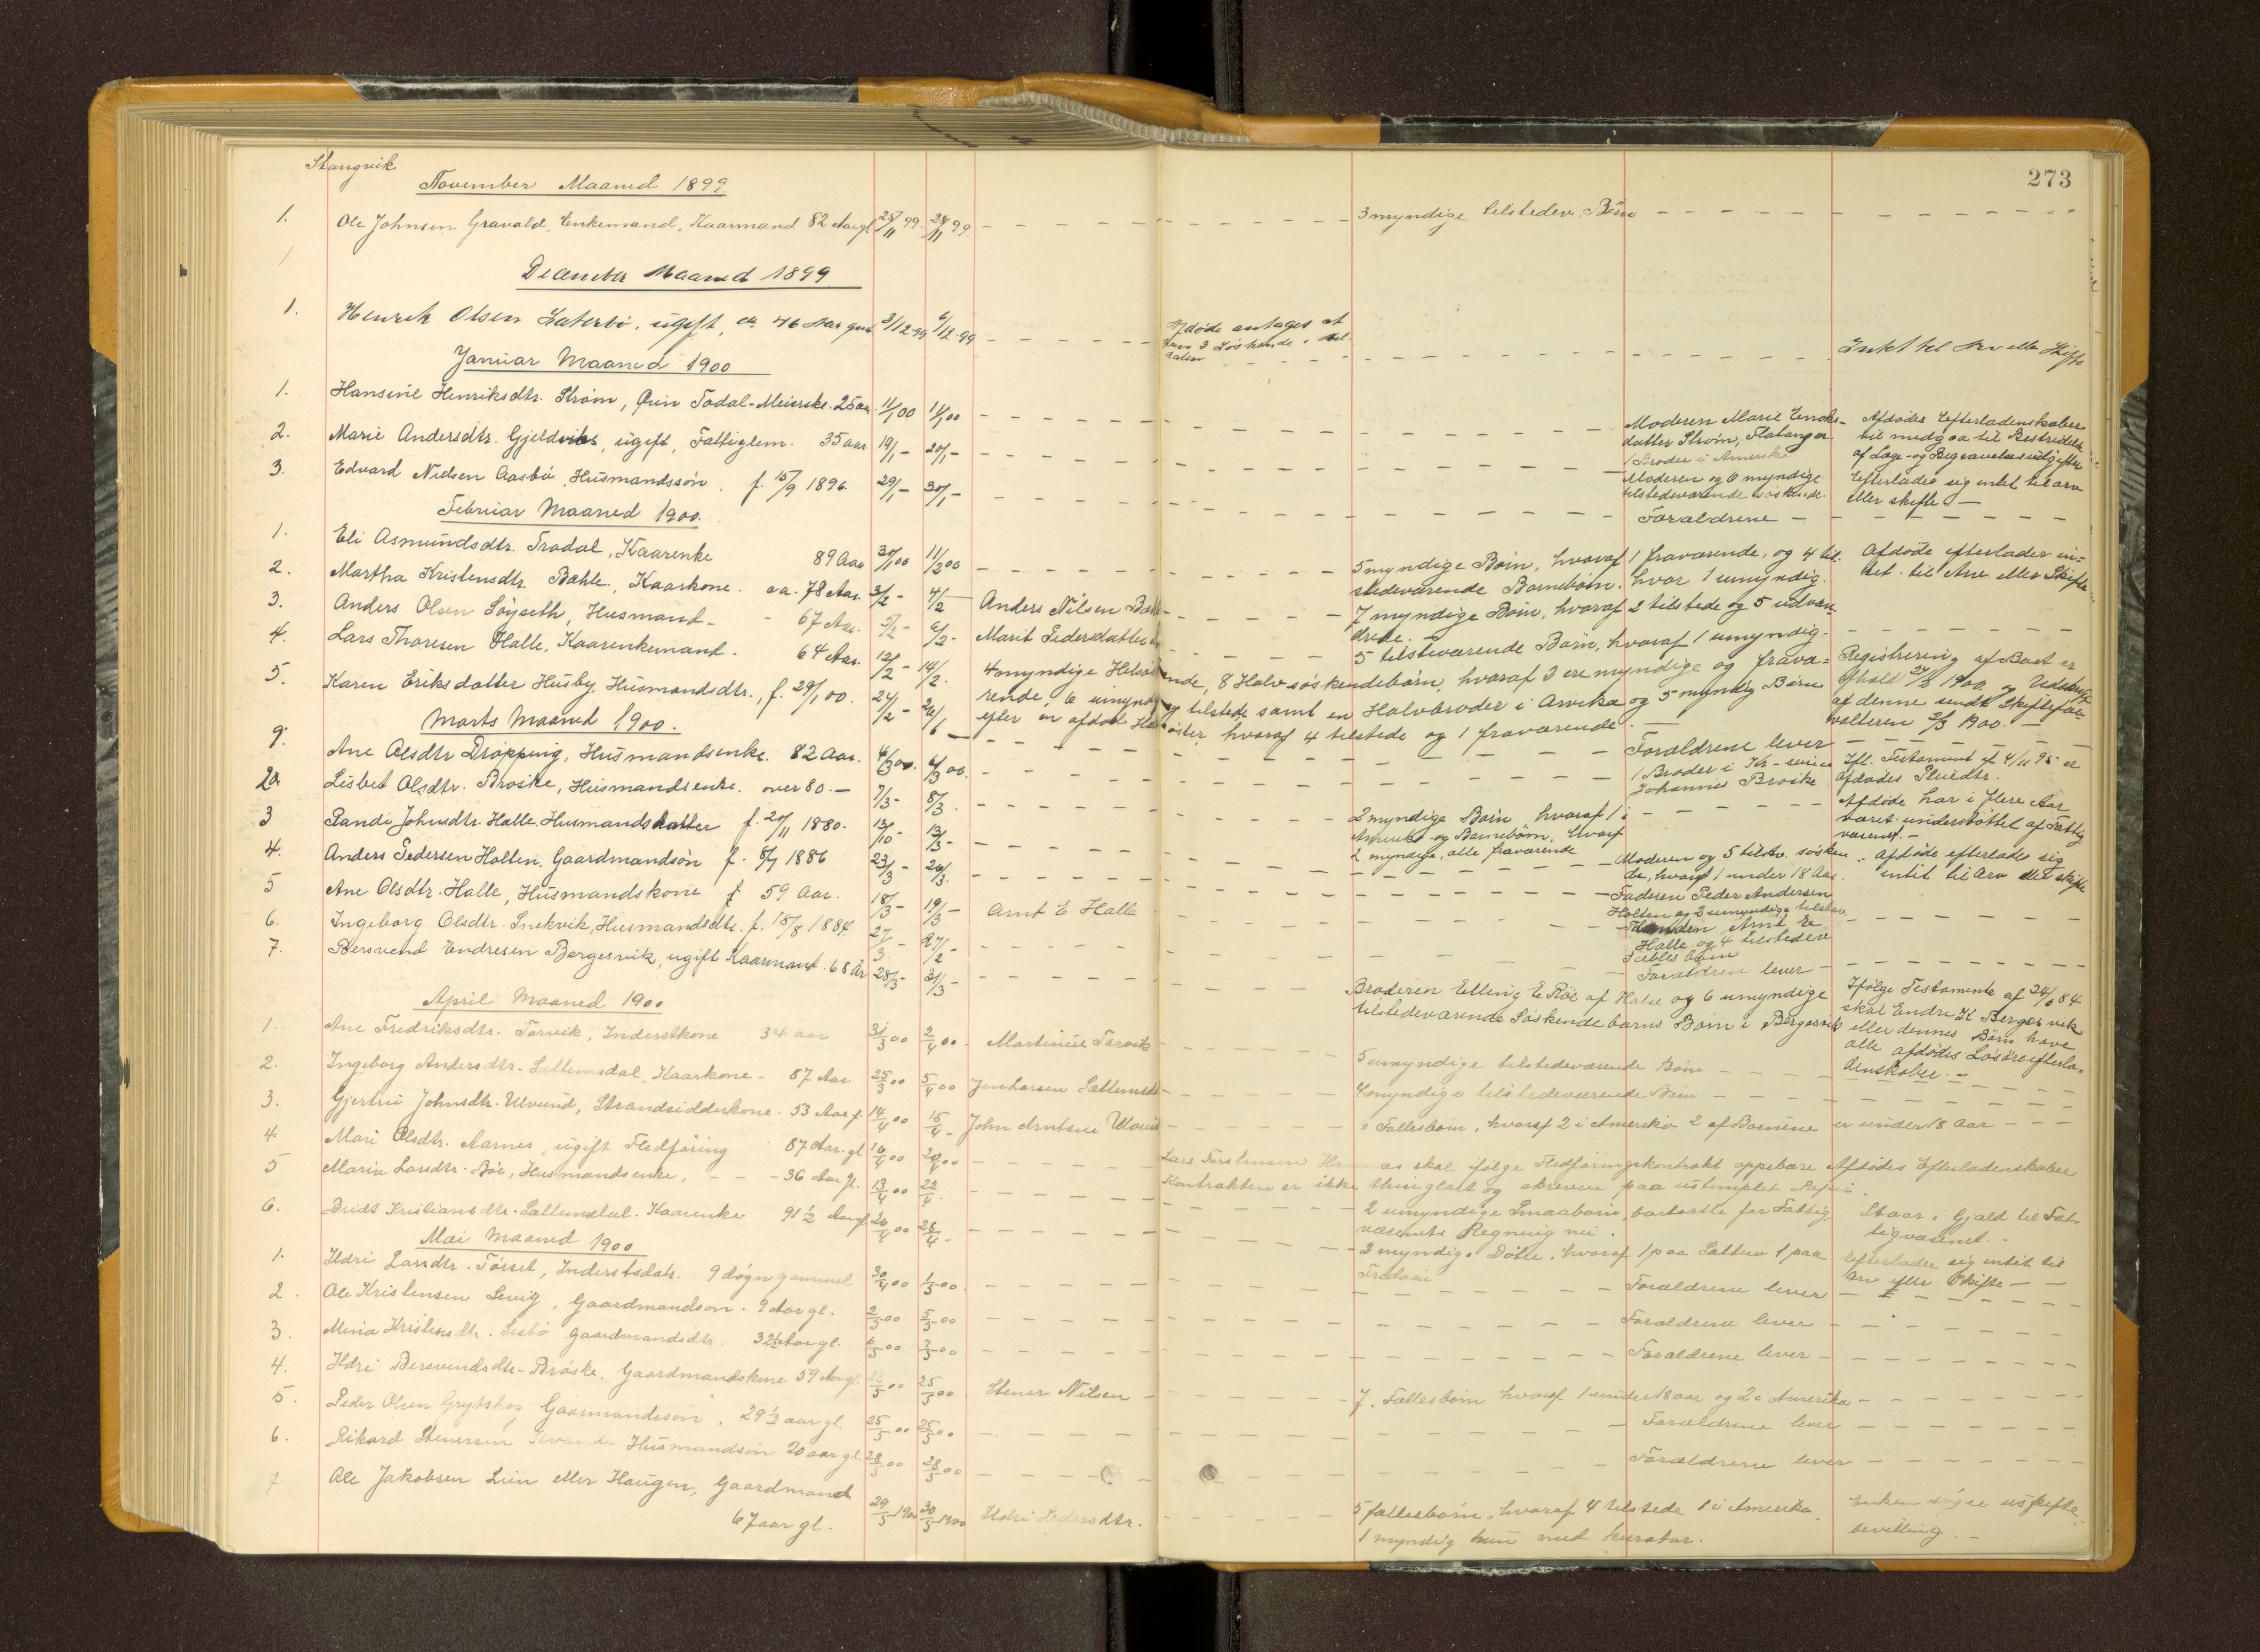 Stangvik
273
November Maaned 1899
1. Ole Johnsen Gravald, Enkemand, Kaarmand 82 Aar gl 25/11 99. 28/11 99. 3 myndige tilstedev. Börn
December Maaned 1899
1. Henrik Olsen Sæterbö, ugift, ca 46 Aar gml 3/12-99 6/12-99 Afdøde antages at
have 3 Söskende i
Intet til Arv eller Skifte
Januar Maaned 1900
1. Hansine Henriksdtr. Ström, Qvin Todal-Meierske. 25 aar. 11/1 00 11/1 00 Moderen Marie Enoks-
datter Ström, Flatanger
1 Broder i Amerika
Afdödes Efterladenskaber
til medgaa til Bestridelse
af Læge- og Begravelsesudgifter
2. Marie Andersdtr. Gjeldvik, ugift, Fattiglem. 35 aar 19/1 - 20/1 - Moderen og 6 myndige
tilstedeværende söskende.
Efterlades sig intet til arv
eller skifte -
3. Edvard Nielsen Aasbö, Husmandssön. f. 15/9 1896. 29/1 - 30/1 - Forældrene -
Februar Maaned 1900.
1. Eli Asmundsdtr. Trodal, Kaarenke 89 Aar 30/1 00 11/2 00 5 myndige Börn, hvoraf 1 fraværende, og 4 til-
stedeværende Barnebörn. hvor 1 umyndig.
Afdöde efterlader in-
tet til Arv eller Skifte
2. Martha Kristensdtr. Bæhle, Kaarkone. ca. 78 Aar. 3/2 - 4/2 - Anders Nilsen 7 myndige Börn, hvoraf 2 tilstede og 5 udvan
drede. -
3. Anders Olsen Söyseth, Husmand - - 67 Aar. 5/2 - 6/2 - Marit Pedersdatter 5 tilsteværende Börn, hvoraf 1 umyndig.
4. Lars Thoresen Halle, Kaarenkemand. 64 Aar. 12/2 - 14/2. 4 myndige Helsöskende, 8 Halvsöskendebörn, hvoraf 3 ere myndige og fravæ=
rende, 6 umyndige tilstede samt en Halvbroder i Arvika og 5 myndig Börn
efter en afdöd Halvsöster, hvoraf 4 tilstede og 1 fraværende.
Registrering af Boet er
afhold 24/2 1900. og Udskrift
af denne sendt Skiftefor
valteren 2/3 1900. -
5. Karen Eriksdatter Husby, Husmandsdtr., f. 29/1 00. 24/2 - 26/ Forældrene lever
Marts Maaned 1900.
9. Ane Olsdtr Dröpping, Husmandsenke. 82 Aar. 4/3 00. 6/3 00. 1 Broder i Kr-
Johannes Bröske
Ifl. Testament af 4/11 95 er
afdödes
2a Lisbet Olsdtr. Bröske, Husmandsenke. over 80. - 7/3 - 8/3. 2 myndige Börn, hvoraf 1 i
Amerika og Barnebörn, hvoraf
2 myndige, alle fraværende
Afdöde har i flere Aar
været understöttet af Fattig
væsenet. -
3 Randi Johnsdtr. Halle. Husmandsdatter f. 20/11 1880. 13/10 - 13/3 - Moderen og 5 tilstv. sösken
de, hvoraf 1 under 18 Aar.
Afdöde efterlades sig
intet til arv eller skifte
4. Anders Pedersen Holten, Gaardmandsön f. 8/7 1886 23/3 - 26/3. Faderen Peder Andersen
Holten og 2 umyndige tilstev.
5 Ane Olsdtr. Halle, Husmandskone f 59 Aar. 18/3 - 19/3 - Arnt E. Halle Arnt E
Halle og 4 tilstedev
Fælles börn
6. Ingeborg Olsdtr. Snekvik, Husmandsdtr. f. 18/8 1884. 27/3 - 27/2 - Forældren lever -
7. Bersvend Endresen Bergesvik, ugift Kaarmand. 68 År 28/3 - 31/3 - Broderen Elling E Röe af Halse og 6 umyndige
tilstedeværende Söskende barns Börn i Bergesvik
Ifölge Testamente af 24/6 84
skal Endre K Bergesvik
eller dennes Börn have
alle afdödes Lösöreefterla-
denskaber. -
April Maaned 1900
1. Ane Fredriksdtr. Torvik, Inderstkone 34 aar 31/3 00 2/4 00. Martinus Torvik 5 umyndige tilstedeværende Börn
2. Ingeborg Andersdtr. Sættemsdal, Kaarkone - 87 Aar. 25/3 00 5/4 00 Jon Larsen myndige tilstedeværende Börn
3. Gjertru Johnsdtr. Ulvund, Strandsidderkone. 53 Aar f. 14/4 00 15/4 - John Arntsen Ulvund 6 Fællesbörn, hvoraf 2 i Amerika 2 af Börnene er under 18 Aar
4. Mari Olsdtr. Aarnes, ugift Fledföring 87 Aar. gl 16/4 00 20/4 00 Lars Torstensen skal ifölge Fledföringskontrakt oppebære Afdödes Efterladenskaber
Kontrakten er ikke thinglæst og skreven paa ustemplet Papir.
5 Maria Larsdtr. Böe, Husmandsenke. - - - 36 Aar gl. 13/4 00 22/4. 2 umyndige Smaabörn, bortsatte for Fattig-
væsenets Regning nu.
Staar i Gjæld til Fat-
tigvæsenet. -
6. Bridt Kristiansdtr. Sættemsdal. Kaarenke 91 1/2 Aar gl 26/4 00 28/4 - 3 myndige Dötre. hvoraf 1 paa Sættem 1 paa
Efterlader sig intet til
Arv eller Skifte - -
Mai Maaned 1900
1. Ildri Larsdtr. Törset, Inderstsdatr. 9 dögn gammel 30/4 00 1/5 00. Forældrene lever
2. Ole Kristensen Sevig, Gaardmandsön. 9 Aar gl. 2/5 00 5/5 00 Forældrene lever
3. Mina Kristensdtr. Gaardmandsdtr. 32 1/2 Aar gl. 6/5 00 7/5 00 Forældrene lever -
4. Ildri Bersvendsdtr - Bröske. Gaardmandskone 59 Aar gl. 23/5 00 25/5 00 Stener Nilsen 7. Fællesbörn hvoraf 1 under 18 aar og 2 i Amerika
5. Peder Olsen Grytskog Gaarmandssön. 29 1/2 aar gl. 25/5 00 25/5 00 Forældrene lever
6. Rikard Stenersen Husmandsön 20 aar gl. 28/5 00 28/5 00 Forældrene lever
7 Ole Jakobsen Lien eller Haugen, Gaardmand
67 aar gl. 29/5 1900 30/5 1900 Ildri Pedersdtr. 5 fællesbörn, hvoraf 4 tilstede 1 i Amerika.
1 myndig kun med kurator.
Enken uskifte
bevilling. -